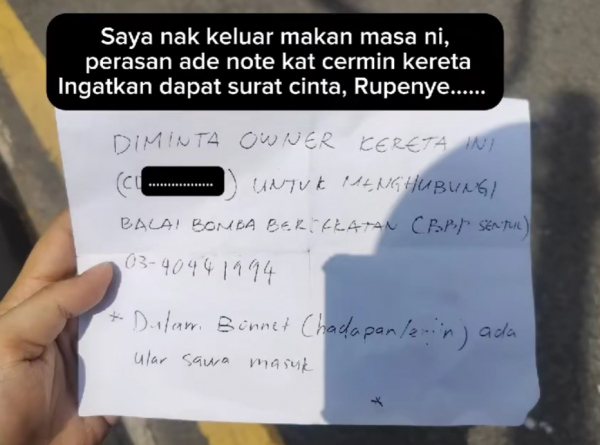 Saya nak keluar makan masa ni,
perasan ade note kat cermin kereta
Ingatkan dapat surat cinta, Rupenye......
DIMINTA OWNER KERETA INI
(CL ................. ) UNTUK MENGHUBUNGI
BALAI BOMBA BERDEKATAN (BBP SENTUL)
03-40441994
* Dalam Bonnet (hadapan/enjin) ada
ular sawa masuk
*